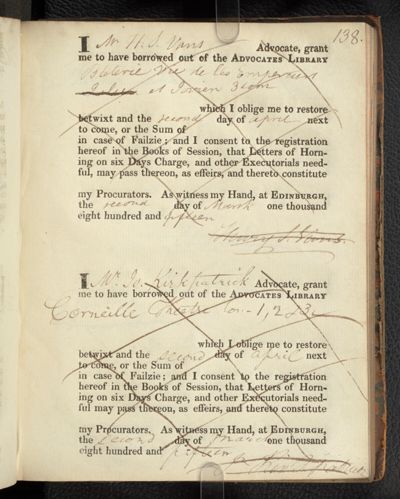 138.
I Mr H. S. Vans Advocate, grant
me to have borrowed out of the ADVOCATES LIBRARY
Valerie Vie de les Empereurs
et Jovien 3 com
which I oblige me to restore
betwixt and the second day of April next
to come, or the Sum of
in case of Failzie; and I consent to the registration
hereof in the Books of Session, that Letters of Horn-
ing on six Days Charge, and other Executorials need-
ful, may pass thereon, as effeirs, and thereto constitute
my Procurators. As witness my Hand, at EDINBURGH,
the second day of March one thousand
eight hundred and fifteen
Henry S. Vans
I Mr Jo. Kirkpatrick Advocate, grant
me to have borrowed out of the ADVOCATES LIBRARY
Corneille Theatre tom. 1, 2 & 3
which I oblige me to restore
betwixt and the second day of April next
to come, or the Sum of
in case of Failzie; and I consent to the registration
hereof in the Books of Session, that Letters of Horn-
ing on six Days Charge, and other Executorials need-
ful may pass thereon, as effeirs, and thereto constitute
my Procurators. As witness my Hand, at EDINBURGH,
the second day of March one thousand
eight hundred and fifteen
Kirkpatrick